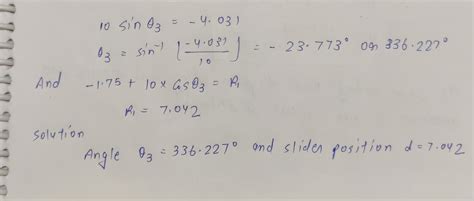 10 sin θ3 = -4.031
θ3 = sin⁻¹ [-4.031/10] = -23.773° or 336.227°
And -1.75 + 10 x Cosθ3 = R1
R1 = 7.042
Solution
Angle θ3 = 336.227° and slider position d = 7.042